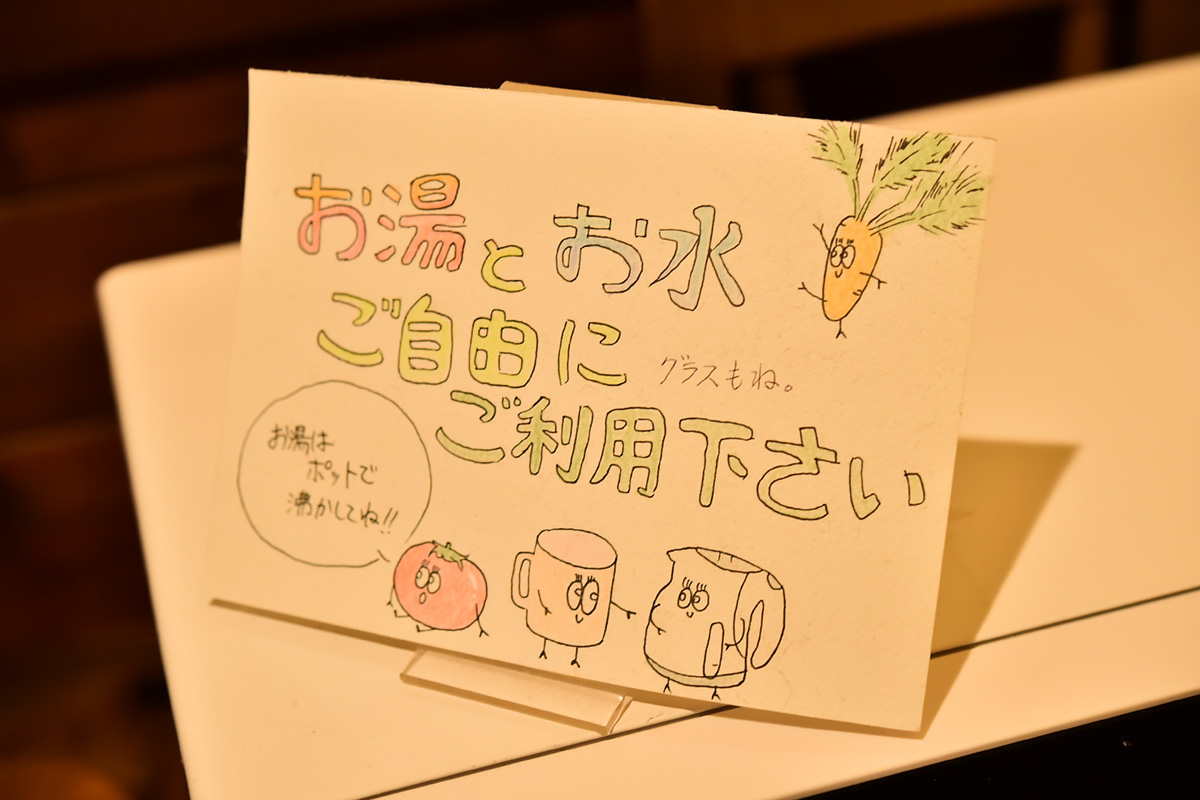 お湯とお水
ご自由に
グラスもね。
ご利用下さい
お湯は
ポットで
沸かしてね!!